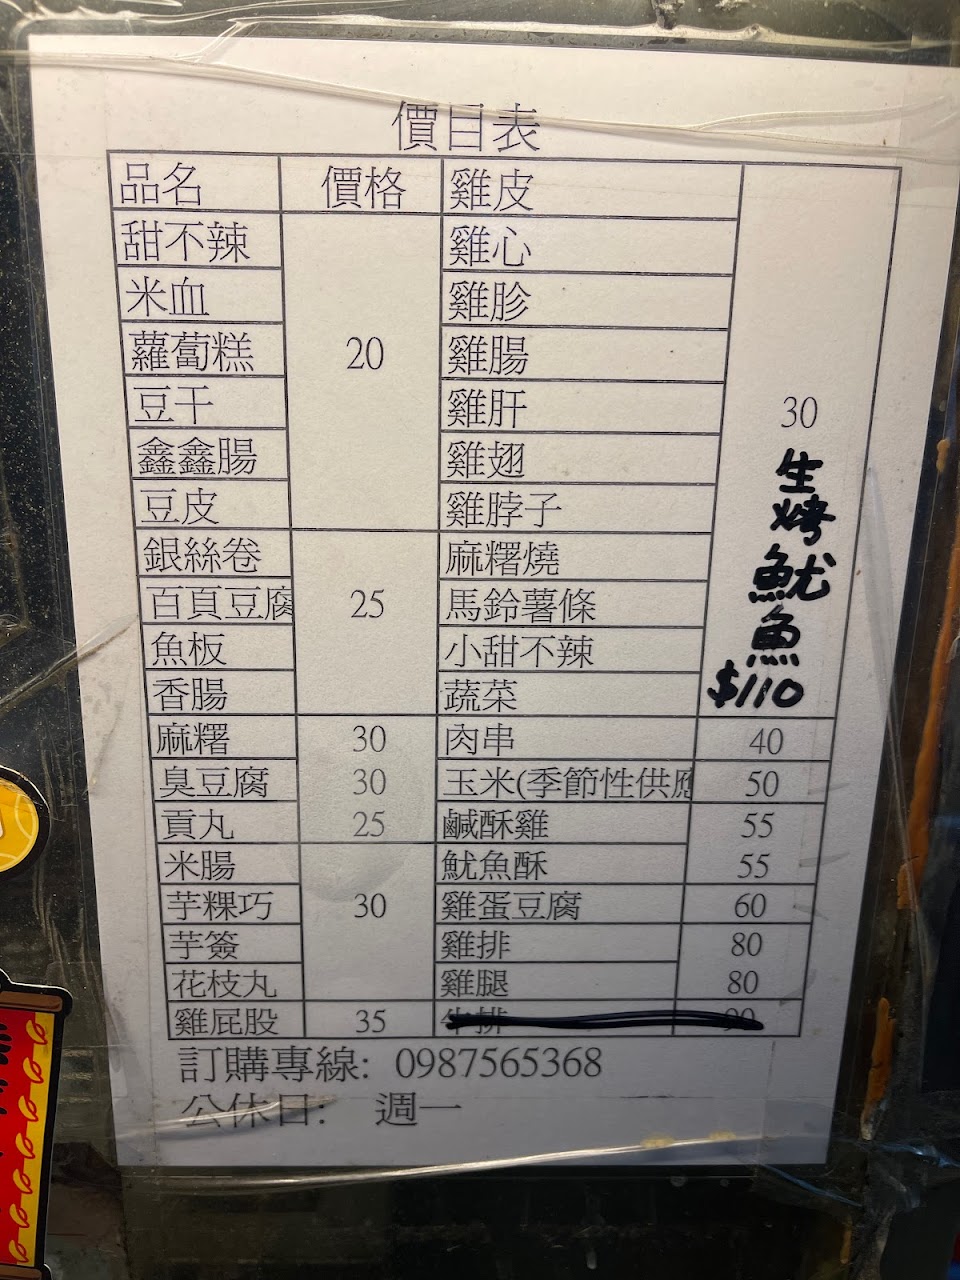 價目表
品名 價格 雞皮
甜不辣 雞心
米血 雞胗
蘿蔔糕 20 雞腸
豆干 雞肝 30
鑫鑫腸 雞翅
豆皮 雞脖子
銀絲卷 麻糬燒
百頁豆腐 25 馬鈴薯條
魚板 小甜不辣
香腸 蔬菜
生烤魷魚
$110
麻糬 30 肉串 40
臭豆腐 30 玉米(季節性供應 50
貢丸 25 鹹酥雞 55
米腸 魷魚酥 55
芋粿巧 30 雞蛋豆腐 60
芋簽 雞排 80
花枝丸 雞腿 80
雞屁股 35
訂購專線: 0987565368
公休日: 週一